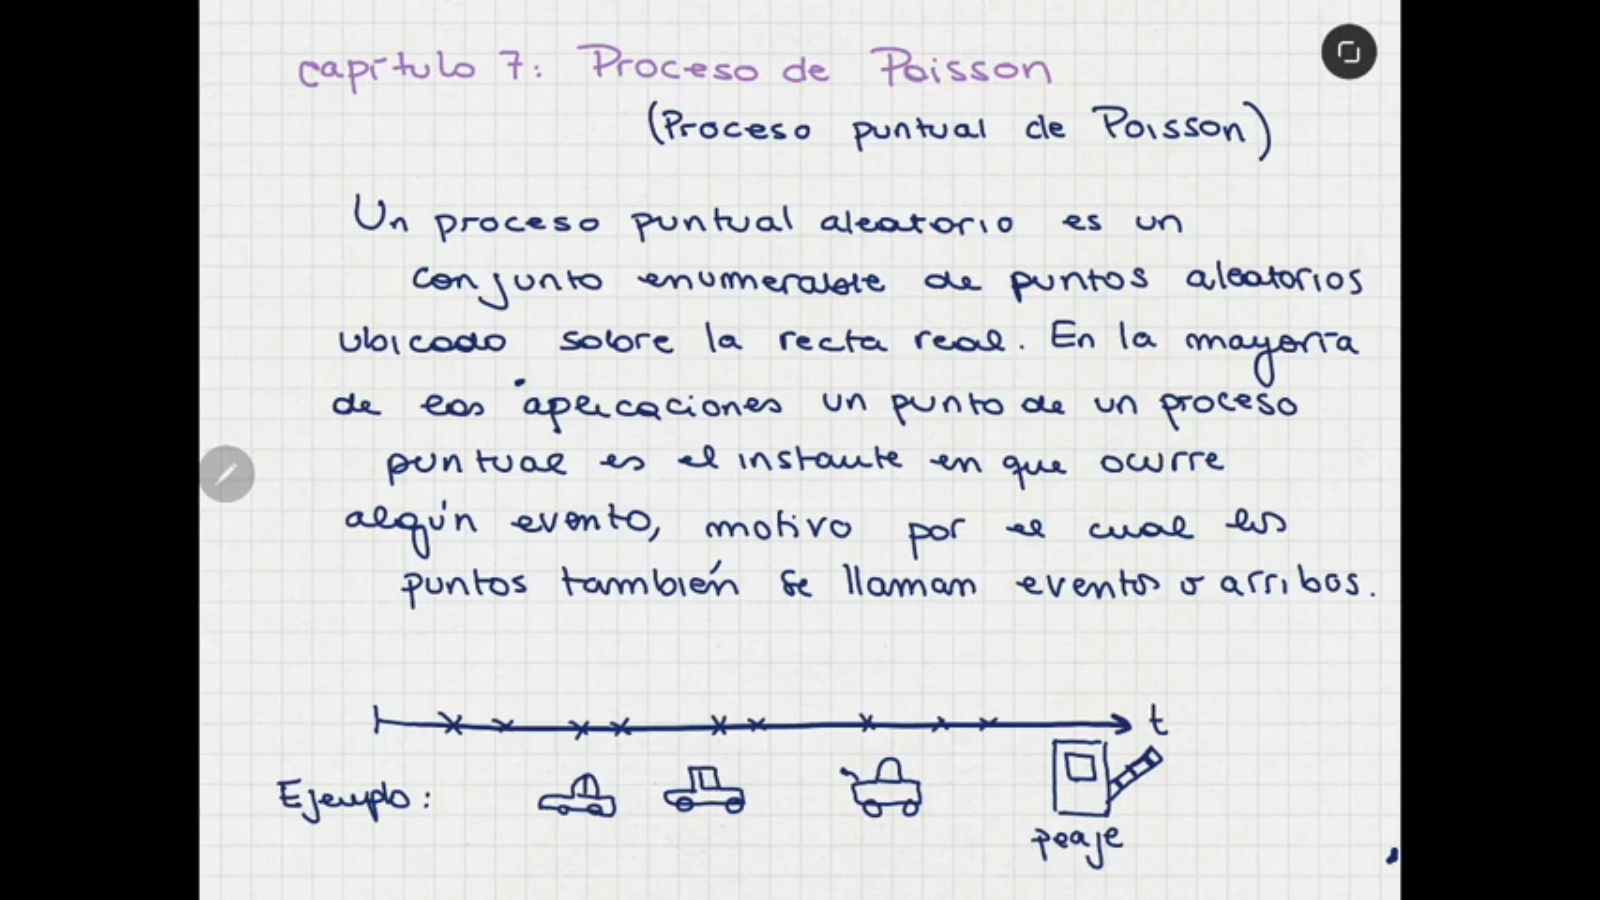 capítulo 7: Proceso de Poisson
(Proceso puntual de Poisson)
Un proceso puntual aleatorio es un
conjunto enumerable de puntos aleatorios
ubicado sobre la recta real. En la mayoría
de las aplicaciones un punto de un proceso
puntual es el instante en que ocurre
algún evento, motivo por el cual los
puntos también se llaman eventos o arribos.
t
Ejemplo:
peaje